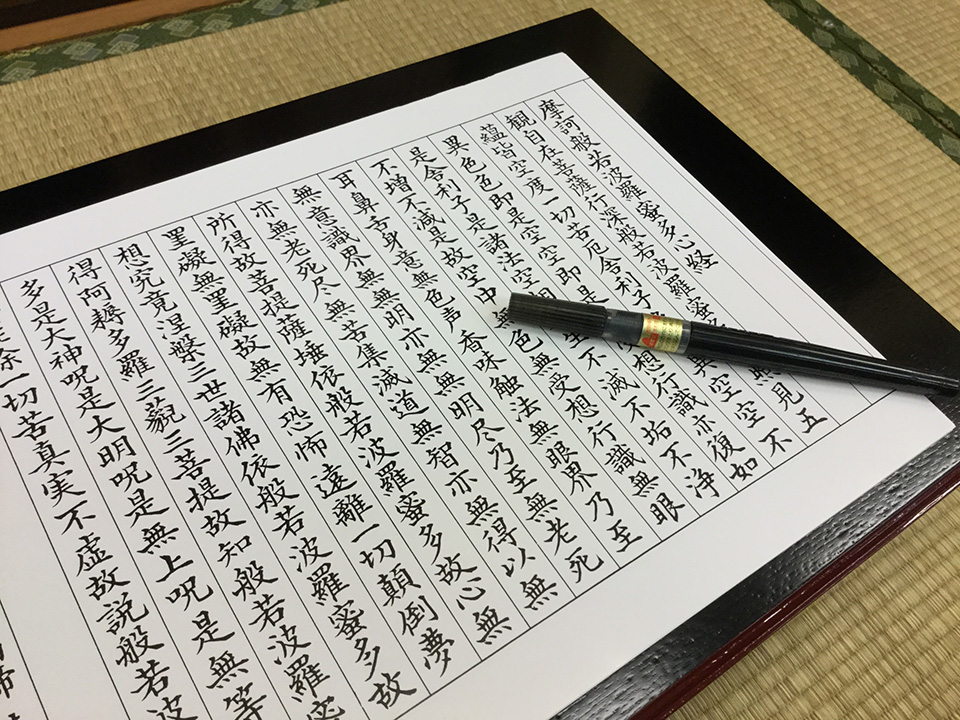 摩訶般若波羅蜜多心経
観自在菩薩行深般若波羅蜜 照見五
蘊皆空度一切苦厄舎利子 異空空不
異色色即是空空即是 受想行識亦復如
是舎利子是諸法空 生不滅不垢不浄
不増不減是故空中 色無受想行識無眼
耳鼻舌身意無色声香味触法無眼界乃至
無意識界無無明亦無無明尽乃至無老死
亦無老死尽無苦集滅道無智亦無得以無
所得故菩提薩埵依般若波羅蜜多故心無
罣礙無罣礙故無有恐怖遠離一切顛倒夢
想究竟涅槃三世諸佛依般若波羅蜜多故
得阿耨多羅三藐三菩提故知般若波羅蜜
多是大神呪是大明呪是無上呪是無等
除一切苦真実不虚故説般若波